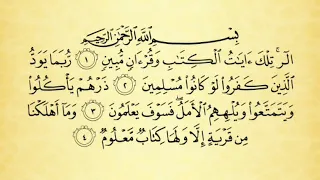 بِسْمِ اللَّهِ الرَّحْمَٰنِ الرَّحِيمِ
الٓر ۚ تِلْكَ ءَايَٰتُ الْكِتَٰبِ وَقُرْءَانٍ مُّبِينٍ ١ رُّبَمَا يَوَدُّ
الَّذِينَ كَفَرُوا لَوْ كَانُوا مُسْلِمِينَ ٢ ذَرْهُمْ يَأْكُلُوا
وَيَتَمَتَّعُوا وَيُلْهِهِمُ الْأَمَلُ ۖ فَسَوْفَ يَعْلَمُونَ ٣ وَمَا أَهْلَكْنَا
مِن قَرْيَةٍ إِلَّا وَلَهَا كِتَابٌ مَّعْلُومٌ ٤